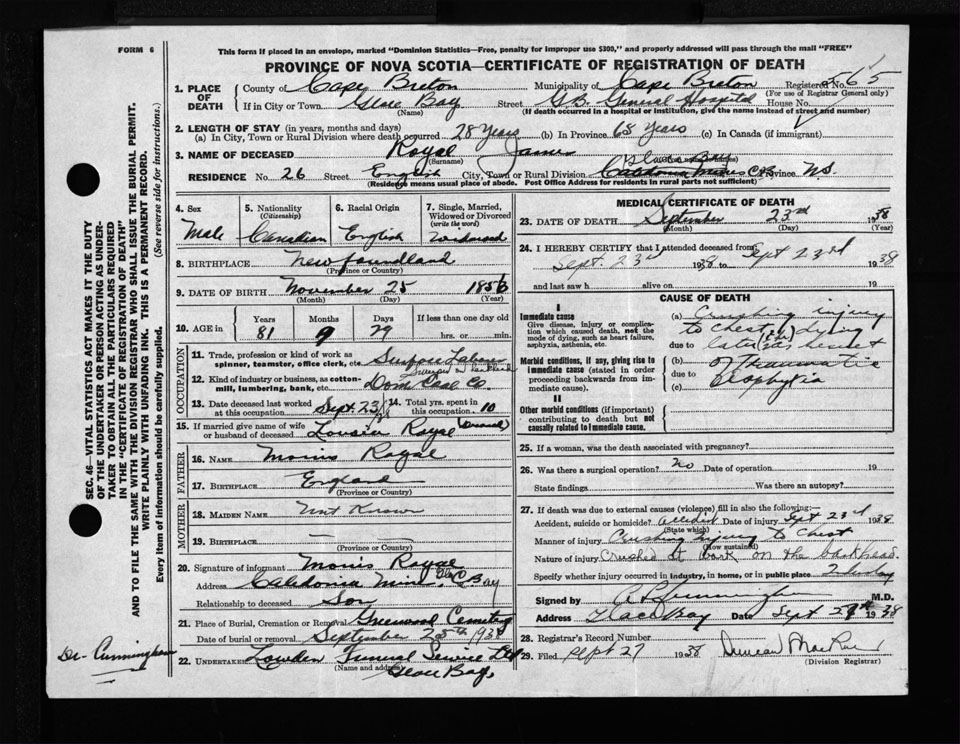 FORM 6
This form if placed in an envelope, marked "Dominion Statistics—Free, penalty for improper use $300," and properly addressed will pass through the mail "FREE"
PROVINCE OF NOVA SCOTIA—CERTIFICATE OF REGISTRATION OF DEATH
1. PLACE OF DEATH
County of Cape Breton Municipality of Cape Breton Registered No. 565
(For use of Registrar General only)
If in City or Town Glace Bay Street G.B. General Hospital House No.
(Name) (If death occurred in a hospital or institution, give the name instead of street and number)
2. LENGTH OF STAY (in years, months and days)
(a) In City, Town or Rural Division where death occurred 28 Years (b) In Province 68 Years (c) In Canada (if immigrant)
3. NAME OF DECEASED Royal James
(Surname)
RESIDENCE No. 26 Street English City, Town or Rural Division Glace Bay Caledonia Mines C.B. Province N.S.
(Residence means usual place of abode. Post Office Address for residents in rural parts not sufficient)
4. Sex Male
5. Nationality (Citizenship) Canadian
6. Racial Origin English
7. Single, Married, Widowed or Divorced (write the word) Widowed
8. BIRTHPLACE Newfoundland
(Province or Country)
9. DATE OF BIRTH November 25 1856
(Month) (Day) (Year)
10. AGE in Years 81 Months 9 Days 29 If less than one day old hrs. or min.
OCCUPATION
11. Trade, profession or kind of work as spinner, teamster, office clerk, etc. Surface Labour
12. Kind of industry or business, as cotton-mill, lumbering, bank, etc. Dom Coal Co.
13. Date deceased last worked at this occupation Sept. 23/38
14. Total yrs. spent in this occupation 10
15. If married give name of wife or husband of deceased Louisa Royal (Deceased)
FATHER
16. NAME Morris Royal
17. BIRTHPLACE England
(Province or Country)
MOTHER
18. MAIDEN NAME Not Known
19. BIRTHPLACE —
(Province or Country)
20. Signature of informant Morris Royal
Address Caledonia Mines G Bay
Relationship to deceased Son
21. Place of Burial, Cremation or Removal Greenwood Cemetery
Date of burial or removal September 25th 1938
22. UNDERTAKER Lowden Funeral Service Ltd
(Name and address) Glace Bay
MEDICAL CERTIFICATE OF DEATH
23. DATE OF DEATH September 23rd 1938
(Month) (Day) (Year)
24. I HEREBY CERTIFY that I attended deceased from
Sept. 23rd 1938 to Sept 23rd 1938
and last saw h alive on 19
CAUSE OF DEATH
I
Immediate cause
Give disease, injury or complication which caused death, not the mode of dying, such as heart failure, asphyxia, asthenia, etc.
Morbid conditions, if any, giving rise to immediate cause (stated in order proceeding backwards from immediate).
II
Other morbid conditions (if important) contributing to death but not causally related to immediate cause.
(a) Crushing injury
to chest, dying
due to later
(b) of traumatic
due to
(c) asphyxia
25. If a woman, was the death associated with pregnancy?
26. Was there a surgical operation? no Date of operation 19
State findings Was there an autopsy?
27. If death was due to external causes (violence) fill in also the following:
Accident, suicide or homicide? accident Date of injury Sept 23rd 1938
(State which)
Manner of injury Crushing injury to chest
(How sustained)
Nature of injury Crushed at work on the bankhead.
Specify whether injury occurred in industry, in home, or in public place Industry
Signed by Cunningham M.D.
Address Glace Bay Date Sept 27th 1938
28. Registrar's Record Number
29. Filed Sept 27 1938 Duncan MacRae
(Division Registrar)
SEC. 46—VITAL STATISTICS ACT MAKES IT THE DUTY OF THE UNDERTAKER OR PERSON ACTING AS UNDERTAKER TO OBTAIN ALL THE PARTICULARS REQUIRED IN THE "CERTIFICATE OF REGISTRATION OF DEATH"
AND TO FILE THE SAME WITH THE DIVISION REGISTRAR WHO SHALL ISSUE THE BURIAL PERMIT.
WRITE PLAINLY WITH UNFADING INK. THIS IS A PERMANENT RECORD.
Every item of information should be carefully supplied. (See reverse side for instructions.)
Dr. Cunningham